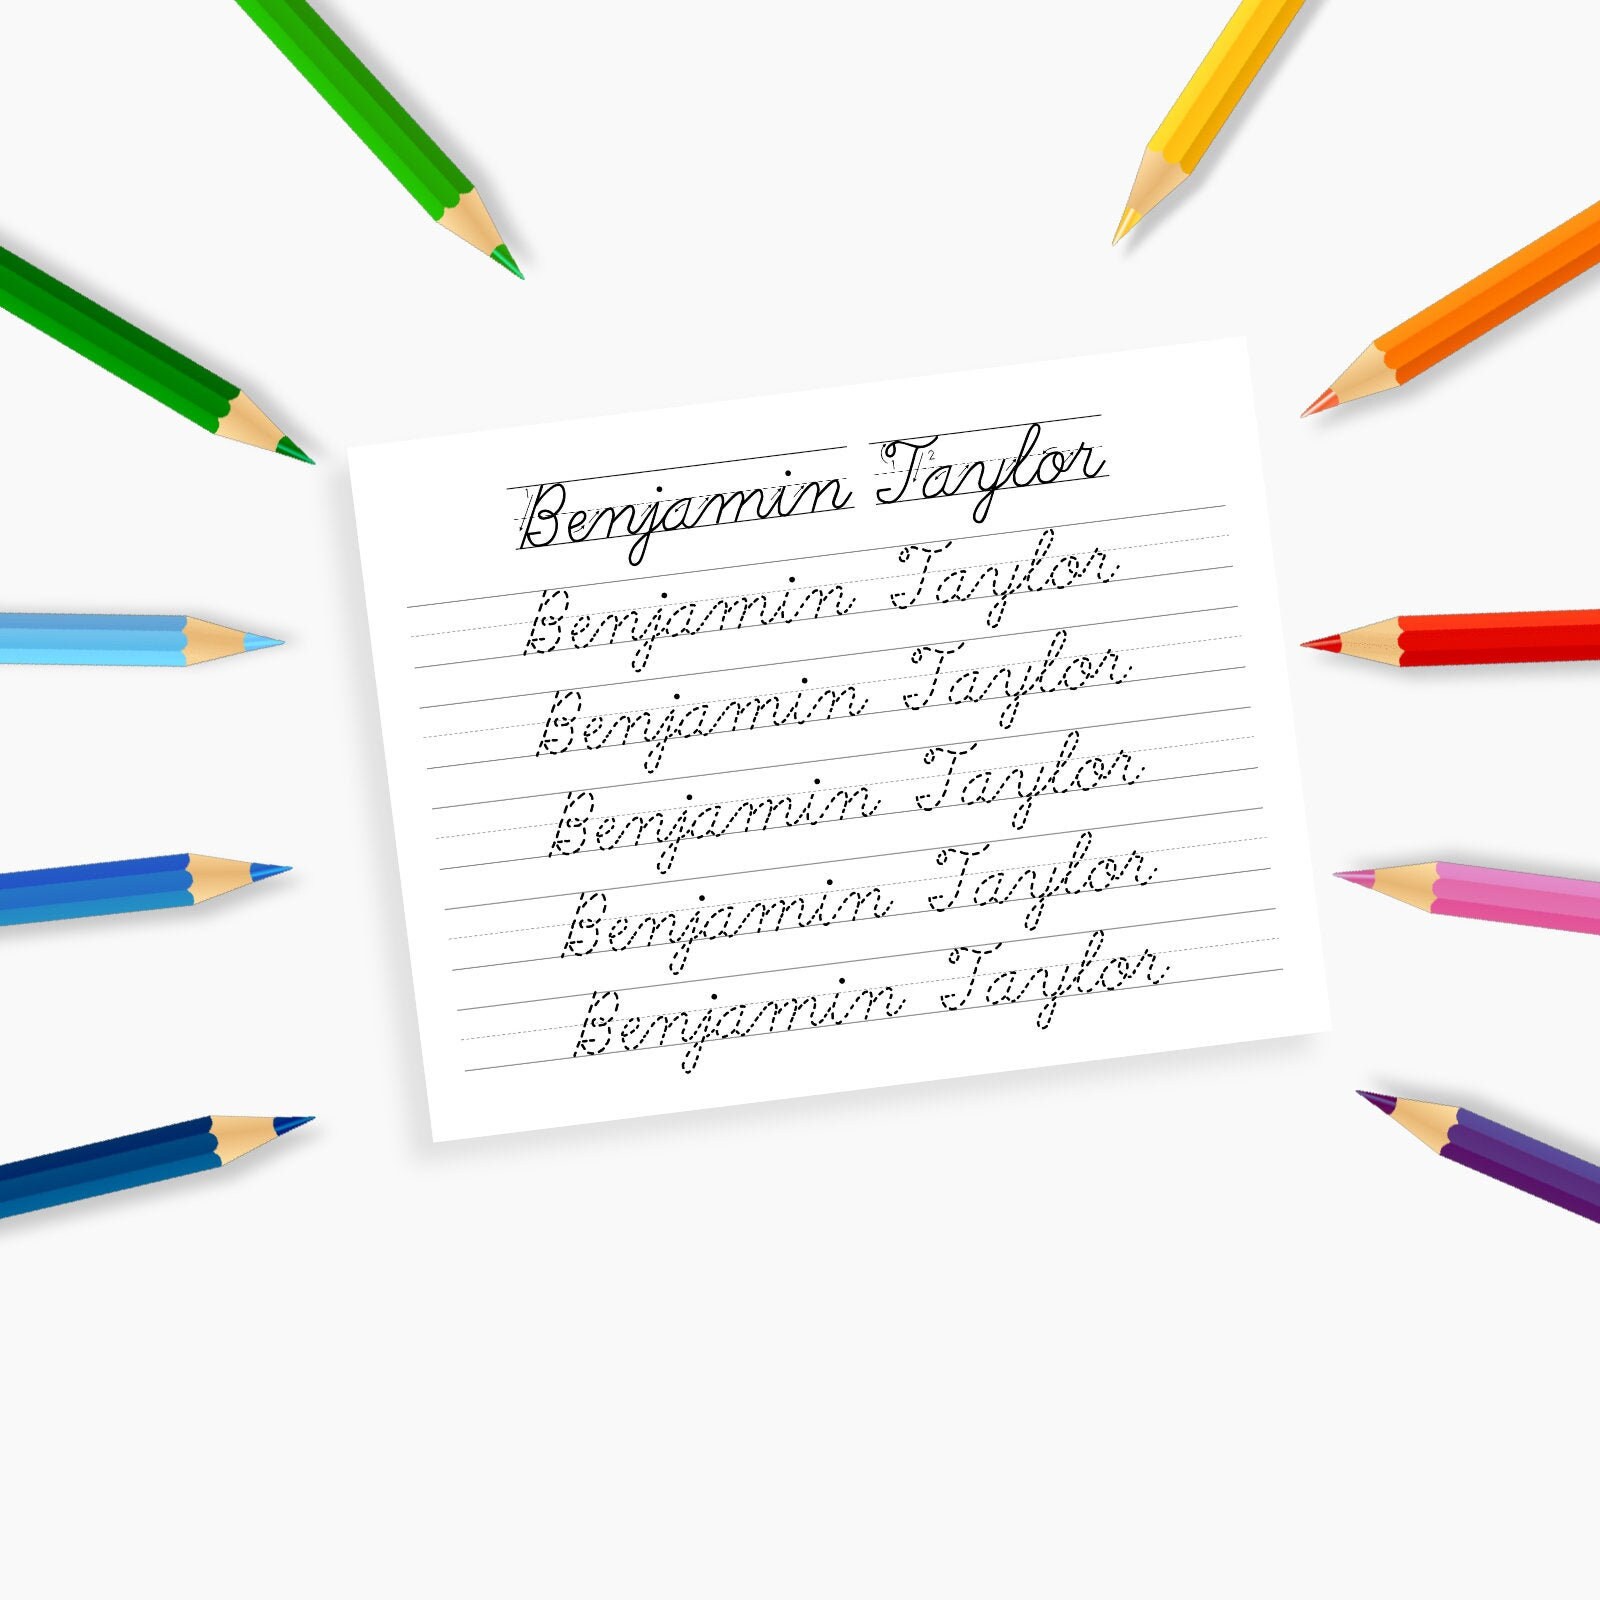 Benjamin Taylor
Benjamin Taylor
Benjamin Taylor
Benjamin Taylor
Benjamin Taylor
Benjamin Taylor